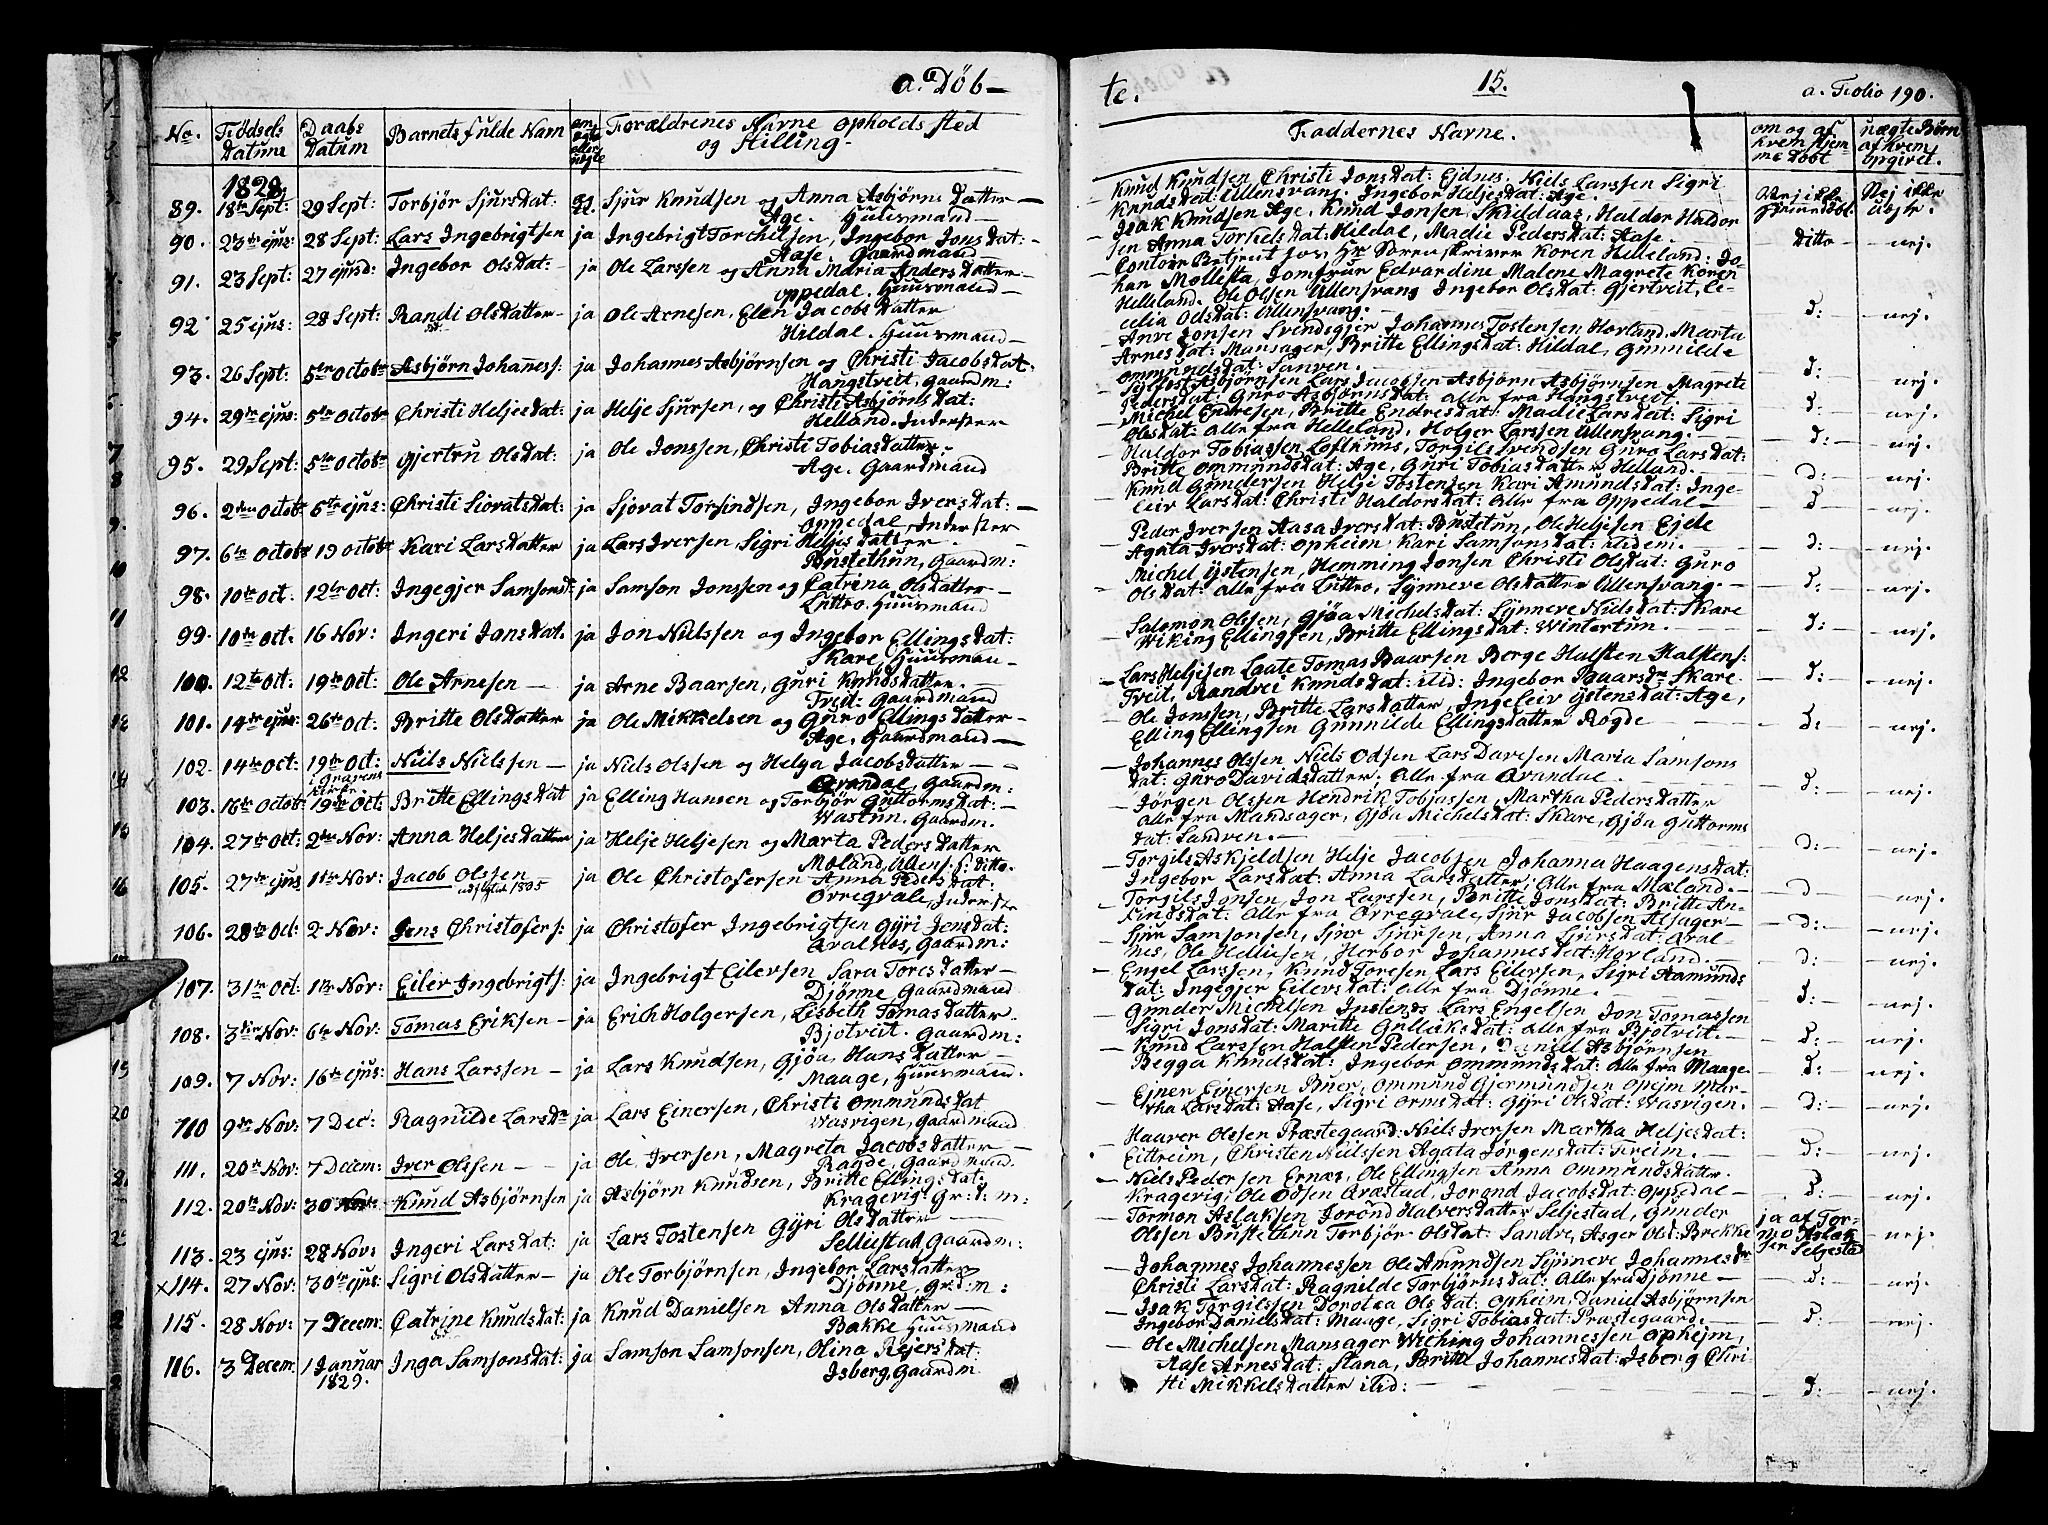 a. Døb-
No. Fødsels Datum Daabs Datum Barnets fulde Nam ægte eller uægte Forældrenes Navne opholds sted og Stilling.
1828
89. 18de Sept: 29 Sept: Torbjør Sjursdat: Sjur Knudsen og Anna Asbjørns Datter
Age. Huusmand
90. 23de ejus: 28 Sept: Lars Ingebrigtsen ja Ingebrigt Torchilsen, Ingebor Jonsdat:
Aase. Gaardmand
91. 23 Sept: 27 ejusd: Ingebor Olsdat: ja Ole Larssen og Anna Maria Anders Datter
oppedal. Huusmand
92 25 ejus: 28 Sept: Randi Olsdatter ja Ole Arnesen, Elen Jacobs datter
Hildal. Huusmand
93. 26 Sept: 5te Octobr Asbjørn Johanness: ja Johannes Asbjørnsen og Christi Jacobsdat.
Hangstveit, Gaardm:
94. 29de ejus: 5te Octobr Christi Heljesdat: ja Helje Sjursen, og Christi Asbjørnsdat:
Helland. Inderster
95. 29 Sept: 5te Octobr Gjertru Olsdat: ja Ole Jonssen, Christi Tobiasdatter.
Age. Gaardmand
96. 2den Octobr 6te ejus: Christi Siovatsdat: ja Sjovat Torfindsen, Ingebor Iversdat:
oppedal, Inderster
97. 6te Octobr 19 Octobr Kari Larsdatter ja Lars Iversen, Sigri Heljes datter
Bustethun, Gaardm:
98. 10de Oct: 12te Oct: Ingegjer Samsonsd: ja Samson Jonssen og Catrina Olsdatter
Lutro. Huusmand
99. 10de Oct. 16 Nov: Ingeri Jonsdat. ja Jon Nielssen og Ingebor Ellingsdat:
Skare, Huusman
100. 12te Oct: 19de Oct: Ole Arnesen ja Arne Baarsen, Guri Knudsdatter.
Tveit. Gaardmand
101. 14de ejus: 26de Oct: Britte Olsdatter ja Ole Mikkelsen og Guro Ellings datter
Age, Gaardmand
102. 14de Oct: 19de Oct: Niels Nielssen ja Niels Olssen og Helga Jacobsdatter
i Gravens Kirke Qvandal, Gaardm:
103. 16de Octobr: 19de Oct: Britte Ellingsdat ja Elling Hansen og Torbjør Guttormsdat:
Wastun. Gaardm.
104. 27de Oct: 2den Nov: Anna Heljesdatter ja Helje Heljesen og Marta Peders datter
Moland, Ullens. G: ditto.
105. 27de ejus 11te Nov: Jacob Olssen ja Ole Christofersen Anna Peders dat:
1835 Ørregvale, Inderster
106. 28de Oct: 2 Nov: Jens Christofers: ja Christofer Ingebrigtsen Gyri Jensdat:
Qvalnes, Gaardm:
107. 31te Oct: 11te Nov: Eiler Ingebrigts: ja Ingebrigt Eilersen Sara Tores datter
Djønne Gaardmand
108. 3die Nov: 6te Nov: Tomas Eriksen ja Erich Holgersen, Lisbeth Tomas datter.
Bjotveit. Gaardm:
109. 7 Nov: 16de ejus: Hans Larssen ja Lars Knudsen, Gjøa Hans datter
Maage, Huusmand.
110 9de Nov: 7 Dec: Ragnilde Larsdr ja Lars Einersen, Christi Ommundsdat
Wasvigen, Gaardmand
111. 20de Nov: 7 Decem: Iver Olssen ja Ole Iversen, Magreta Jacobs datter
Ragde, Gaardmand.
112. 20de Nov: 30 Nov: Knud Asbjørnsen ja Asbjørn Knudsen, Britte Ellingsdat:
Kragevig Grd: m:
113. 23 ejus: 28 Nov: Ingeri Larsdat: ja Lars Tostensen Gyri Olsdatter
Selliestad, Gaardm:
x114. 27 Nov: 30te ejus: Sigri Olsdatter ja Ole Torbjørnsen, Ingebor Larsdatter
Djønne, Grd: m:
115. 28 Nov: 7 Decem: Catrine Knudsdat: ja Knud Danielsen Anna Olsdatter
Bakke Huusmand
116. 3 Decem: 1 Januar 1829. Inga Samsonsdat: ja Samson Samsonsen, Olina Rejersdat:
Isberg, Gaardm
te. 15. a. Folio 190.
Faddernes Navne. om og af hvem hjemme døbt uægte Børn af hvem opgivet.
Knud Knudsen Christi Jonsdat: Ejdnes. Niels Larssen Sigri
Knudsdat: Ullensvang. Ingebor Heljesdat: Age. Nej ikke
Isak Knudsen Age. Knud Jonsen Skieldaas, Haldor Haldor
sen Anna Torkelsdat: Hildal, Madie Pedersdat: Aase. Ditto nej.
Contoir Betjent hos Hr Sorenskriver Koren Helleland: Jo
han Mollesta, Jomfrue Edvardine Malene Magrete Koren
Helleland. Ole Olsen Ullensvang Ingebor Olsdat: Gjertveit, Ce-
celia Odsdat: Ullensvang. D: nej.
Anve Jonsen Svindsgjer Johannes Tostensen Horland. Marta
Arnesdat: Mansager, Britte Ellingsdat: Hildal, Gunnilde
Ommundsdat: Sanven. D: nej.
Asbjørnsen Lars Jacobsen Asbjørn Asbjørnsen Magrete
Pedersdat: Guro Asbjørnsdat: alle fra Hangstveit. D: nej.
Michel Endresen, Britte Endresdat: Madie Larsdat: Sigri
Olsdat: alle fra Helleland, Holger Larssen Ullensvang. D: nej.
Haldor Tobiassen Lofthuus, Torgils Svendsen Guro Larsdat:
Britte Ommundsdat: Age, Guri Tobias datter Helland. D: nej.
Knud Gundersen Helje Tostensen Kari Amundsdat: Inge-
leiv Larsdat: Christi Haldorsdat: Alle fra Oppedal D nej.
Peder Iversen Aasa Iversdat: Bustetun, Ole Heljesen Ejde
Agata Iversdat: Opheim Kari Samsonsdat: itidem. D: nej.
Michel Ystensen, Hemming Jonsen Christi Olsdat: Guro
Olsdat: alle fra Lutro, Synneve Olsdatter Ullensvang. D: nej.
Salomon Olssen, Gjøa Michelsdat: Synneve Nielsdat: Skare
Wiking Ellingsen, Britte Ellingsdat: Wintertun. D: nej.
Lars Heljesen Laate Tomas Baarsen Berge Halsten Halstens:
Tveit, Randvei Knudsdat: itid: Ingebor Baarsdr Skare. D: nej.
Ole Jonssen, Britte Larsdatter, Ingeleiv Ystensdat: Age,
Elling Ellingsen Gunnilde Ellingsdatter Rogde D: nej.
Johannes Olssen Niels Odsen Lars Davidsen Maria Samsons
dat: Guro Davidsdatter. Alle fra Qvandal. D: nej.
Jørgen Olssen Hendrik Tobjassen, Martha Pedersdatter
alle fra Mandsager, Gjøa Michelsdat: Skare, Gjøa Guttorms
dat: Sandven. D: nej.
Torgils Askjeldsen Helje Jacobsen Johanna Haagensdat:
Ingebor Larsdat: Anna Larsdatter, Alle fra Mæland. D nej.
Torgils Jonsen, Jon Larssen, Britte Jonsdat: Britte An-
findsdat: Alle fra Ørregvale, Sjur Jacobsen Alsager D: nej.
Sjur Samsonsen, Sjur Sjursen, Anna Sjursdat: Qval-
nes, Ole Helliesen, Herbor Johannesdat: Horland. D: nej.
Engel Larssen, Knud Toresen Lars Eilersen, Sigri Aamunds
dat: Ingegjer Eilevsdat: alle fra Djønne. D: nej.
Gunder Michelsen Justenes Lars Engelsen Jon Tomassen
Sigri Jonsdat: Maritte Gulleiksdat: alle fra Bjotveit. D: nej.
Knud Larssen Halsten Pedersen, Daniel Asbjørnsen
Begga Knudsdat: Ingebor Ommundsdat: Alle fra Maage D: nej.
Ejner Einersen Buer, Ommund Gjermundsen Opejm Mar-
tha Larsdat: Aase, Sigri Ormsdat: Gyri Olsdat: Wasvigen. D: nej.
Haaver Olssen Præstegaard: Niels Iversen Martha Heljesdat:
Eittreim, Christen Neilssen Agata Jørgensdat: Freim. D: nej.
Niels Pedersen Ernæs, Ole Ellingsen Anna Ommundsdatter.
Kragevig, Ole Odsen Qvæstad, Jorond Jacobsdat: Oppedal D: nej.
Tormon Aslaksen Jorond Halversdatter Seljestad, Gunder ja af Tor-
Olssen Bustetunn Torbjør Olsdat: Sandve, Asger Olsd: Brekke mo Aslak nej.
sen Seljestad
Johannes Johannessen Ole Amundsen Synneve Johannesdr
Christi Larsdat: Ragnilde Torbjørnsdat: Alle fra Djønne D: nej.
Isak Torgilssen Dorotea Olsdat: Opheim, Daniel Asbjørnsen
Ingebor Danielsdat: Maage, Sigri Tobiasdat: Præstegaard. D: nej.
Ole Michelsen Mansager Wiching Johannessen Ophejm,
Aase Arnesdat: Stana, Britte Johannesdat: Isberg Chri
sti Mikkelsdatter itid: D: nej.